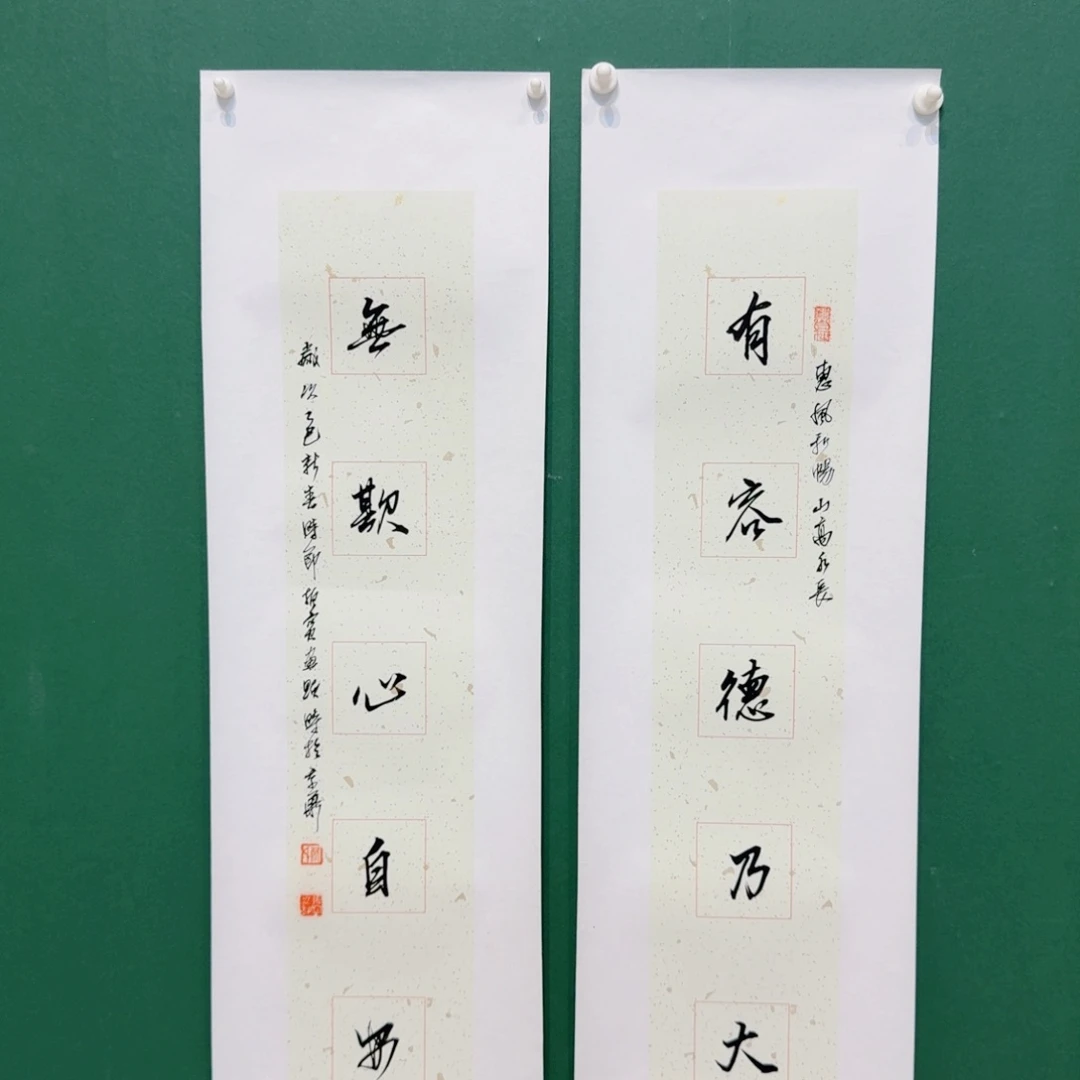 有容德乃大
惠風和暢 山高水長
無欺心自安
歲次乙巳新春時節